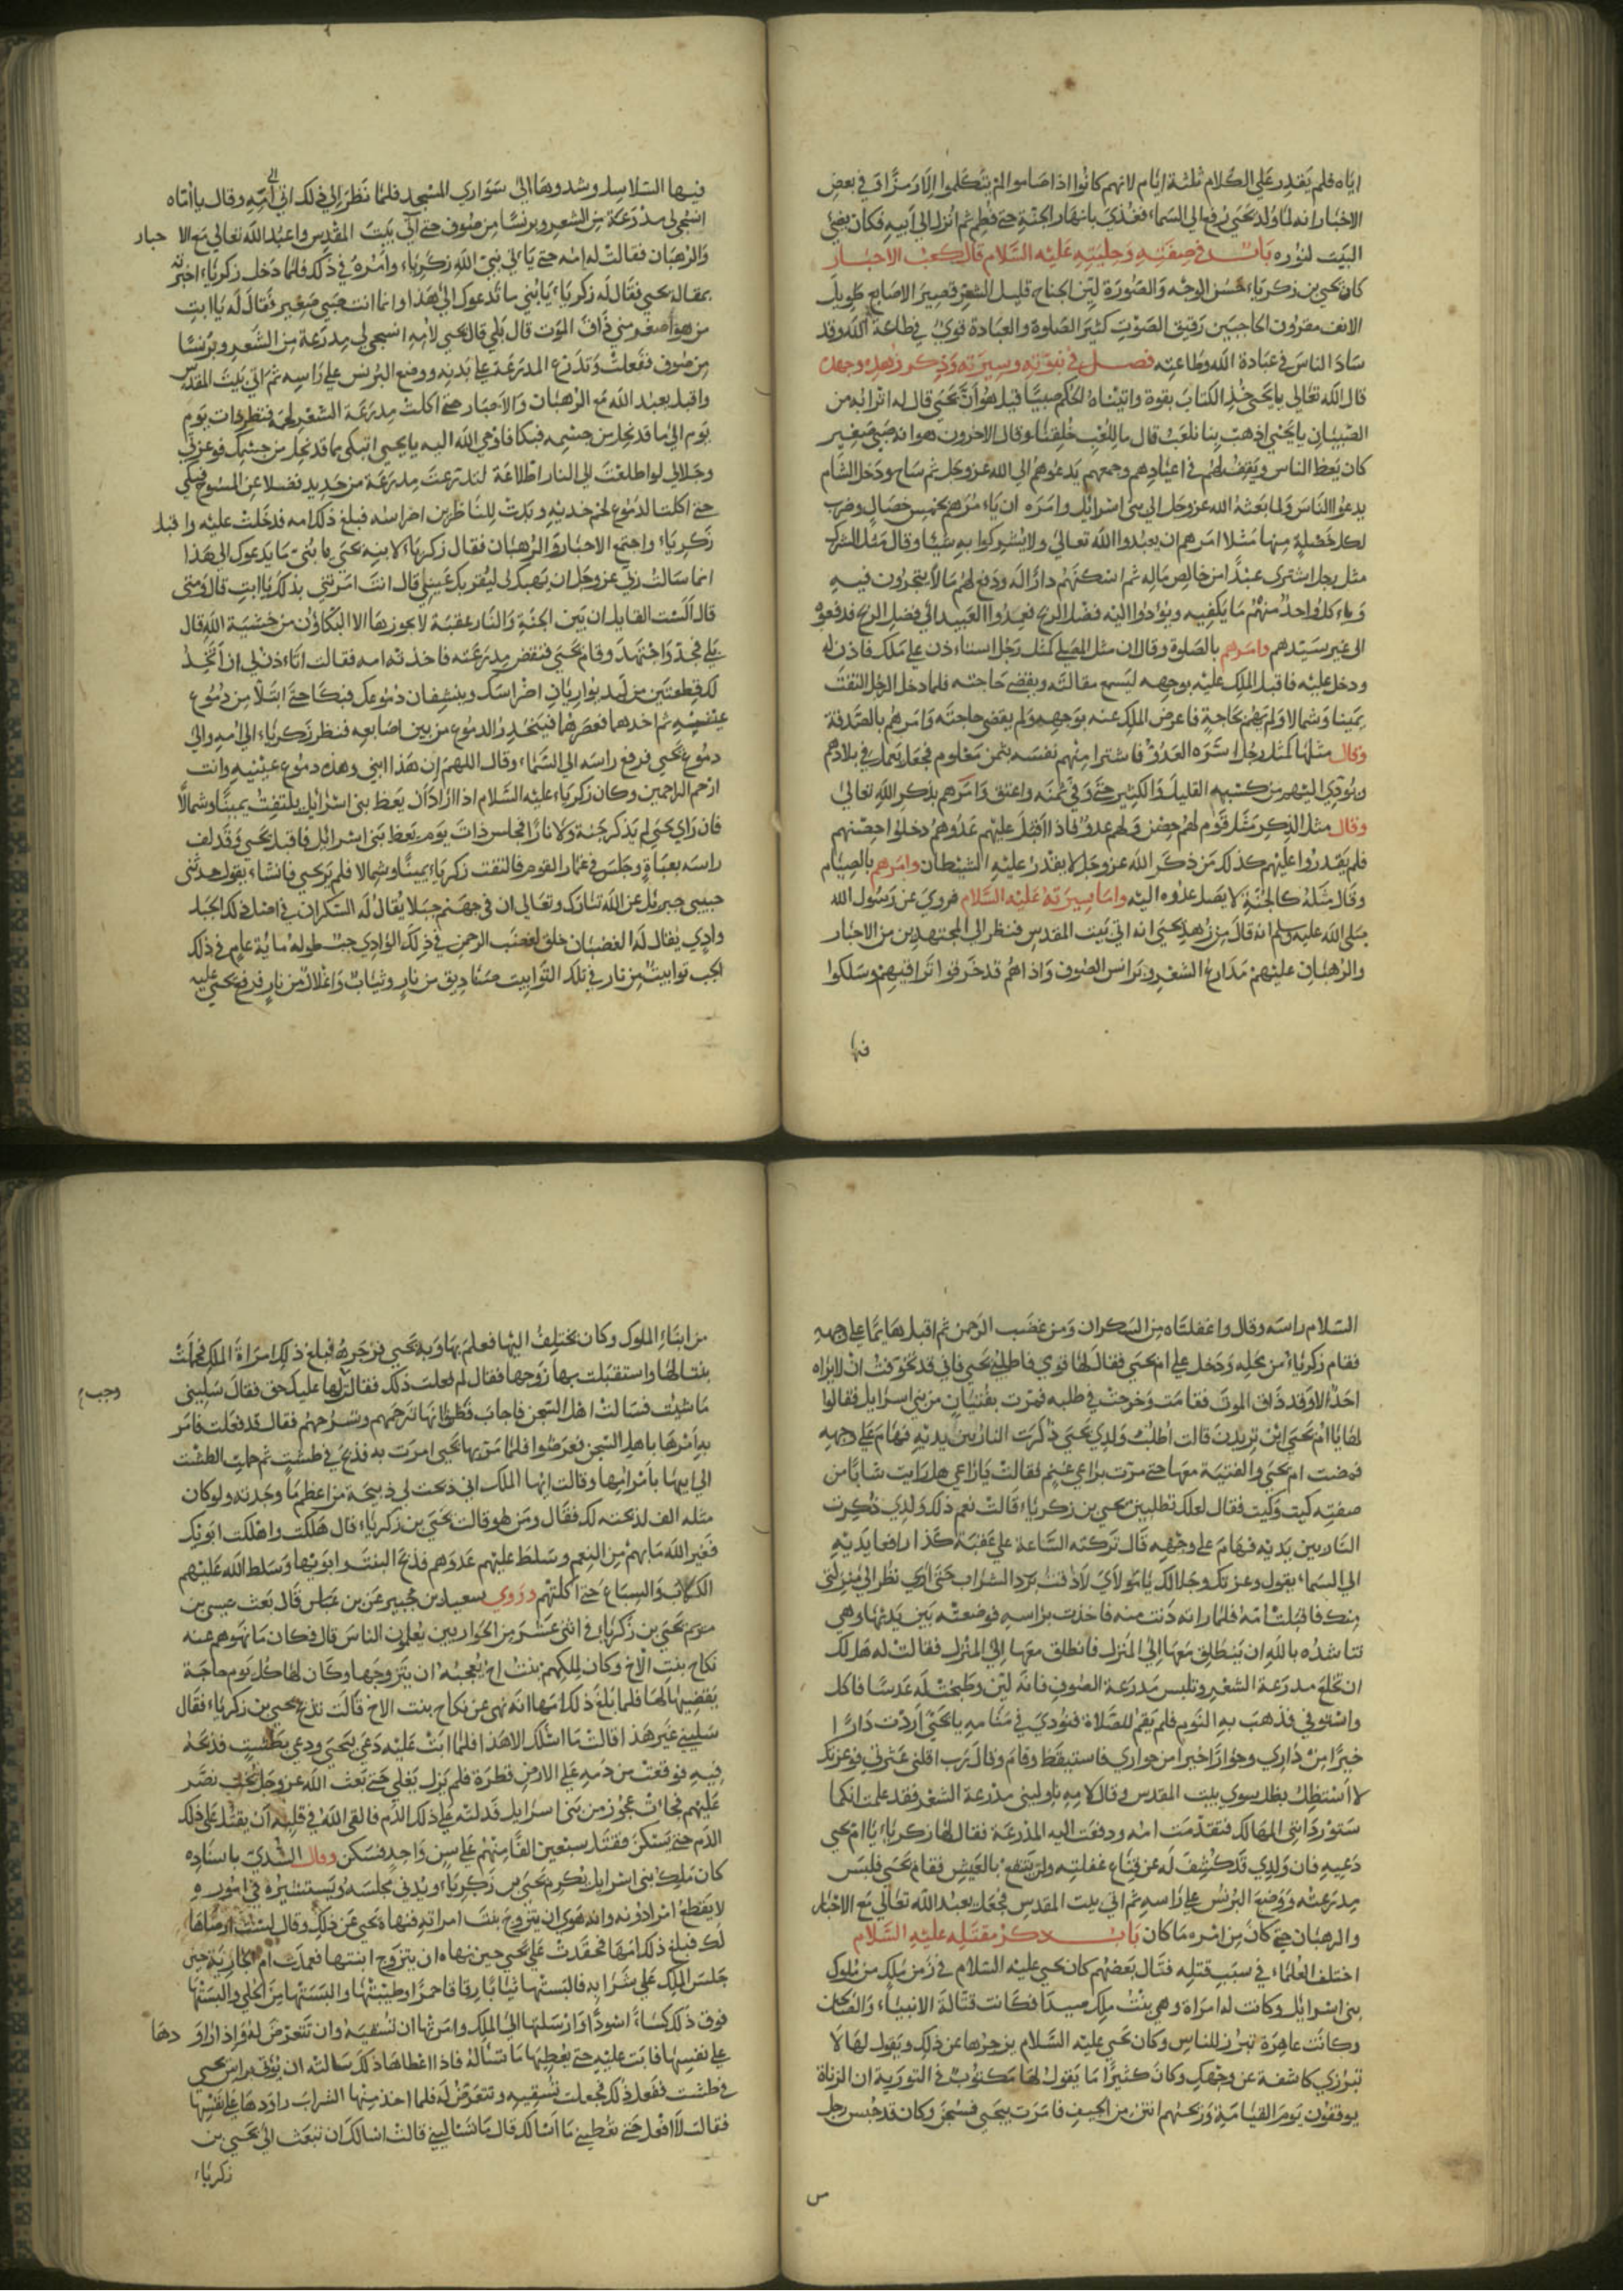 اياه فلم يقدر على الكلام ثلثة ايام لانهم كانوا اذا صاموا لم يتكلموا الا رمزا وفي بعض
الاخبار انه لما ولد يحيى رفع الى السماء فغذي بانهار الجنة حتى فطم ثم انزل الى ابيه فكان يضئ
البيت لنوره باب في صفته وحليته عليه السلام قال كعب الاحبار
كان يحيى بن زكرياء حسن الوجه والصورة لين الجناح قليل الشعر قصير الاصابع طويل
الانف مقرون الحاجبين رقيق الصوت كثير الصلوة والعبادة قوي في طاعة الله وقد
ساد الناس في عبادة الله وطاعته فصل في نبوته وسيرته وذكر زهده وجهده
قال الله تعالى يا يحيى خذ الكتاب بقوة واتيناه الحكم صبيا قيل هو ان يحيى قال له اترابه من
الصبيان يا يحيى اذهب بنا نلعب قال ما للعب خلقنا وقال الاخرون هو انه صبي صغير
كان يعظ الناس ويقف لهم في اعيادهم وجمعهم يدعوهم الى الله عز وجل ثم ساح ودخل الشام
يدعوا الناس ولما بعثه الله عز وجل الى بني اسرائيل وامره ان ياءمرهم بخمس خصال وضرب
لكل خصلة منها مثلا امرهم ان يعبدوا الله تعالى ولا يشركوا به شيئا وقال مثل الشرك
مثل رجل اشترى عبدا من خالص ماله ثم اسكنهم دارا له ودفع لهم مالا يتجرون فيه
وياءكل واحد منهم ما يكفيه ويؤدوا اليه فضل الربح فعمدوا العبيد الى فضل الربح فدفعوه
الى غير سيدهم وامرهم بالصلوة وقال ان مثل المصلي كمثل رجل استاءذن على ملك فاذن له
ودخل عليه فاقبل الملك عليه بوجهه ليسمع مقالته ويقضي حاجته فلما دخل الرجل التفت
يمينا وشمالا ولم يهتم بحاجة فاعرض الملك عنه بوجهه ولم يقض حاجته وامرهم بالصدقة
وقال مثلها كمثل رجل اسره العدو فاشترا منهم نفسه بثمن معلوم فجعل يعمل في بلادهم
ويؤدي اليهم من كسبه القليل والكثير حتى وفي ثمنه واعتق وامرهم بذكر الله تعالى
وقال مثل الذكر مثل قوم لهم حصن ولهم عدو فاذا اقبل عليهم عدوهم دخلوا حصنهم
فلم يقدروا عليهم كذلك من ذكر الله عز وجل لا يقدر عليه الشيطان وامرهم بالصيام
وقال مثله كالجنة لا يصل عدوه اليه واما سيرته عليه السلام فروي عن رسول الله
صلى الله عليه وسلم انه قال من زهد يحيى انه اتى بيت المقدس فنظر الى المجتهدين من الاحبار
والرهبان عليهم مدارع الشعر وبرانس الصوف واذا هم قد خرقوا تراقيهم وسلكوا
فيها
فيها السلاسل وشدوها الى سواري المسجد فلما نظر الى ذلك اتى الى امه وقال يا امّاه
انسجي لي مدرعة من الشعر وبرنسا من صوف حتى آتي بيت المقدس واعبد الله تعالى مع الا حبار
والرهبان فقالت له امه حتى ياءتي نبي الله زكرياء واءمره في ذلك فلما دخل زكرياء اخبرته
بمقالة يحيى فقال له زكرياء يا بني ما تدعوك الى هذا وانما انت صبي صغير فقال له يا ابت
من هو اصغر مني ذاق الموت قال بلى قال يحيى لامه انسجي لي مدرعة من الشعر وبرنسا
من صوف ففعلت وتدرع المدرعة على بدنه ووضع البرنس على راسه ثم اتى بيت المقدس
واقبل يعبد الله مع الرهبان والاحبار حتى اكلت مدرعة الشعر لحمه فنظر ذات يوم
يوم الى ما قد نحل من جسمه فبكا فاوحى الله اليه يا يحيى اتبكي مما قد نحل من جسمك فوعزتي
وجلالي لو اطلعت الى النار اطلاعة لتدرعت مدرعة من حديد فضلا عن المسوح فبكى
حتى اكلت الدموع لحم خديه وبدت للناظرين اضراسه فبلغ ذلك امه فدخلت عليه واقبل
زكرياء واجتمع الاحبار والرهبان فقال زكرياء لابنه يحيى يا بني ما يدعوك الى هذا
انما سالت ربي عز وجل ان يهبك لي ليقر بك عيني قال انت امرتني بذلك يا ابت قال ومتى
قال الست القايل ان بين الجنة والنار عقبة لا يجوزها الا البكاؤن من خشية الله قال
بلى فجد واجتهد وقام يحيى فنفض مدرعته فاخذته امه فقالت اتاءذن لي ان اتخذ
لك قطعتين من لبد يواريان اضراسك وينشفان دموعك فبكا حتى ابتلا من دموع
عينيه ثم اخذهما فعصرهما فينحدر الدموع من بين اصابعه فنظر زكرياء الى امه والى
دموع يحيى فرفع راسه الى السماء وقال اللهم ان هذا ابني وهذه دموع عينيه وانت
ارحم الراحمين وكان زكرياء عليه السلام اذا اراد ان يعظ بني اسرائيل يلتفت يمينا وشمالا
فان راي يحيى لم يذكر جنة ولا نارا فجلس ذات يوم يعظ بني اسرائيل فاقبل يحيى وقد لف
راسه بعباءة وجلس في غمار القوم فالتفت زكرياء يمينا وشمالا فلم ير يحيى فانشاء يقول حدثني
حبيبي جبرئل عن الله تبارك وتعالى ان في جهنم جبلا يقال له السكران في اصل ذلك الجبل
وادي يقال له الغضبان خلق لغضب الرحمن في ذلك الوادي جب طوله ماية عام في ذلك
الجب توابيت من نار في تلك التوابيت صناديق من نار وثياب واغلال من نار فرفع يحيى عليه
السلام راسه وقال واغفلتاه من السكران ومن غضب الرحمن ثم اقبل هايما على وجهه
فقام زكرياء من محله ودخل على ام يحيى فقال لها قومي فاطلبي يحيى فاني قد تخوفت ان لا يراه
احد الا وقد ذاق الموت فقامت وخرجت في طلبه فمرت بفتيان من بني اسرايل فقالوا
لها يا ام يحيى اين تريدين قالت اطلب ولدي يحيى ذكرت النار بين يديه فهام على وجهه
فمضت ام يحيى والفتية معها حتى مرت براعي غنم فقالت يا راعي هل رايت شابا من
صفته كيت وكيت فقال لعلك تطلبين يحيى بن زكرياء قالت نعم ذلك ولدي ذكرت
النار بين يديه فهام على وجهه قال تركته الساعة على عقبة كذا رافعا يديه
الى السماء يقول وعزتك وجلالك يا مولاي لا ذقت برد الشراب حتى ارى نظر الى منزلتي
منك فاقبلت امه فلما راته دنت منه فاخذت براسه فوضعته بين يديها وهي
تناشده بالله ان ينطلق معها الى المنزل فانطلق معها الى المنزل فقالت له هل لك
ان تخلع مدرعة الشعر وتلبس مدرعة الصوف فانه لين وطبخت له عدسا فاكل
واستوفي فذهب به النوم فلم يقم للصلاة فنودي في منامه يا يحيى اردت دارا
خيرا من داري وجوارا خيرا من جواري فاستيقظ وقام وقال رب اقلني عثرتي فوعزتك
لا استظل بظل سوي بيت المقدس وقال لامه ناوليني مدرعة الشعر فقد علمت انكما
ستورداني المهالك فتقدمت امه ودفعت اليه المدرعة فقال لها زكرياء يا ام يحيى
دعيه فان ولدي قد كشف له عن قناع غفلته ولن ينتفع بالعيش فقام يحيى فلبس
مدرعته ووضع البرنس على راسه ثم اتى بيت المقدس فجعل يعبد الله تعالى مع الاحبار
والرهبان حتى كان من امره ما كان باب ذكر مقتله عليه السلام
اختلف العلماء في سبب قتله فقال بعضهم كان يحيى عليه السلام في زمن ملك من ملوك
بني اسرايل وكانت له امراة وهي بنت ملك صيدا فكانت قتالة الانبياء والصالحين
وكانت عاهرة تبرز للناس وكان يحيى عليه السلام يزجرها عن ذلك ويقول لها لا
تبرزي كاشفة عن وجهك وكان كثيرا ما يقول لها مكتوب في التورية ان الزناة
يوقفون يوم القيامة وريحهم انتن من الجيف فامرت بيحيى فسجن وكان قد حبس رجل
من ابناء الملوك وكان يختلف اليها فعلم بها وبه يحيى فزجره فبلغ ذلك امراة الملك فحملت
بنتا لها واستقبلت بها زوجها فقال لم فعلت ذلك فقالت لها عليك حق فقال سليني
وجب
ما شيت فسالت اهل السجن فاجاب فظن انها ترحمهم وتسرحهم فقال قد فعلت فامر
بامرها باهل السجن فعرضوا فلما مر بها يحيى امرت به فذبح في طشت ثم حملت الطشت
الى ابيها بامرامها وقالت ايها الملك اني ذبحت لي ذبيحة من اعظم ما وجدته ولو كان
مثله الف لذبحته لك فقال ومن هو قالت يحيى بن زكرياء قال هلكت واهلكت ابويك
فغير الله ما بهم من النعم وسلط عليهم عدوهم فذبح البنت وابويها وسلط الله عليهم
الكلاب والسباع حتى اكلتهم وروي سعيد بن جبير عن بن عباس قال بعث عيسى بن
مريم يحيى بن زكرياء في اثنى عشر من الحواريين يعلمون الناس قال فكان ما نهوهم عنه
نكاح بنت الاخ وكان لملكهم بنت اخ تعجبه ان يتزوجها وكان لها كل يوم حاجة
يقضيها لها فلما بلغ ذلك امها انه نهى عن نكاح بنت الاخ قالت تذبح يحيى بن زكرياء فقال
سليني غير هذا قالت ما اسئلك الا هذا فلما ابت عليه دعى بيحيى ودعى بطشت فذبحه
فيه فوقعت من دمه على الارض قطرة فلم يزل يغلي حتى بعث الله عز وجل بخت نصر
عليهم فجات عجوز من بني اسرايل فدلته على ذلك الدم فالقى الله في قلبه ان يقتل على ذلك
الدم حتى يسكن فقتل سبعين الفا منهم على سن واحد فسكن وقال السدي باسناده
كان ملك بني اسرايل يكرم يحيى بن زكرياء ويدني مجلسه ويستشيره في اموره
لا يقطع امرا دونه وانه هوى ان يتزوج بنت امراته فنهاه يحيى عن ذلك وقال لست ارضاها
لك فبلغ ذلك امها فحقدت على يحيى حين نهاه ان يتزوج ابنتها فعمدت ام الجارية حين
جلس الملك على شرابه فالبستها ثيابا رقاقا حمرا وطيبتها والبستها من الحلي والبستها
فوق ذلك كساء اسودا وارسلتها الى الملك وامرتها ان تسقيه وان تتعرض له واذا راو دها
على نفسها فابت عليه حتى يعطيها ما تسأله فاذا اعطاها ذلك سالته ان يؤتى براس يحيى
في طشت ففعل ذلك فجعلت تسقيه وتتعرض له فلما اخذ منها الشراب راودها على نفسها
فقالت لا افعل حتى تعطيني ما اسالك قال ما تسأليني قالت اسالك ان تبعث الى يحيى بن
زكرياء